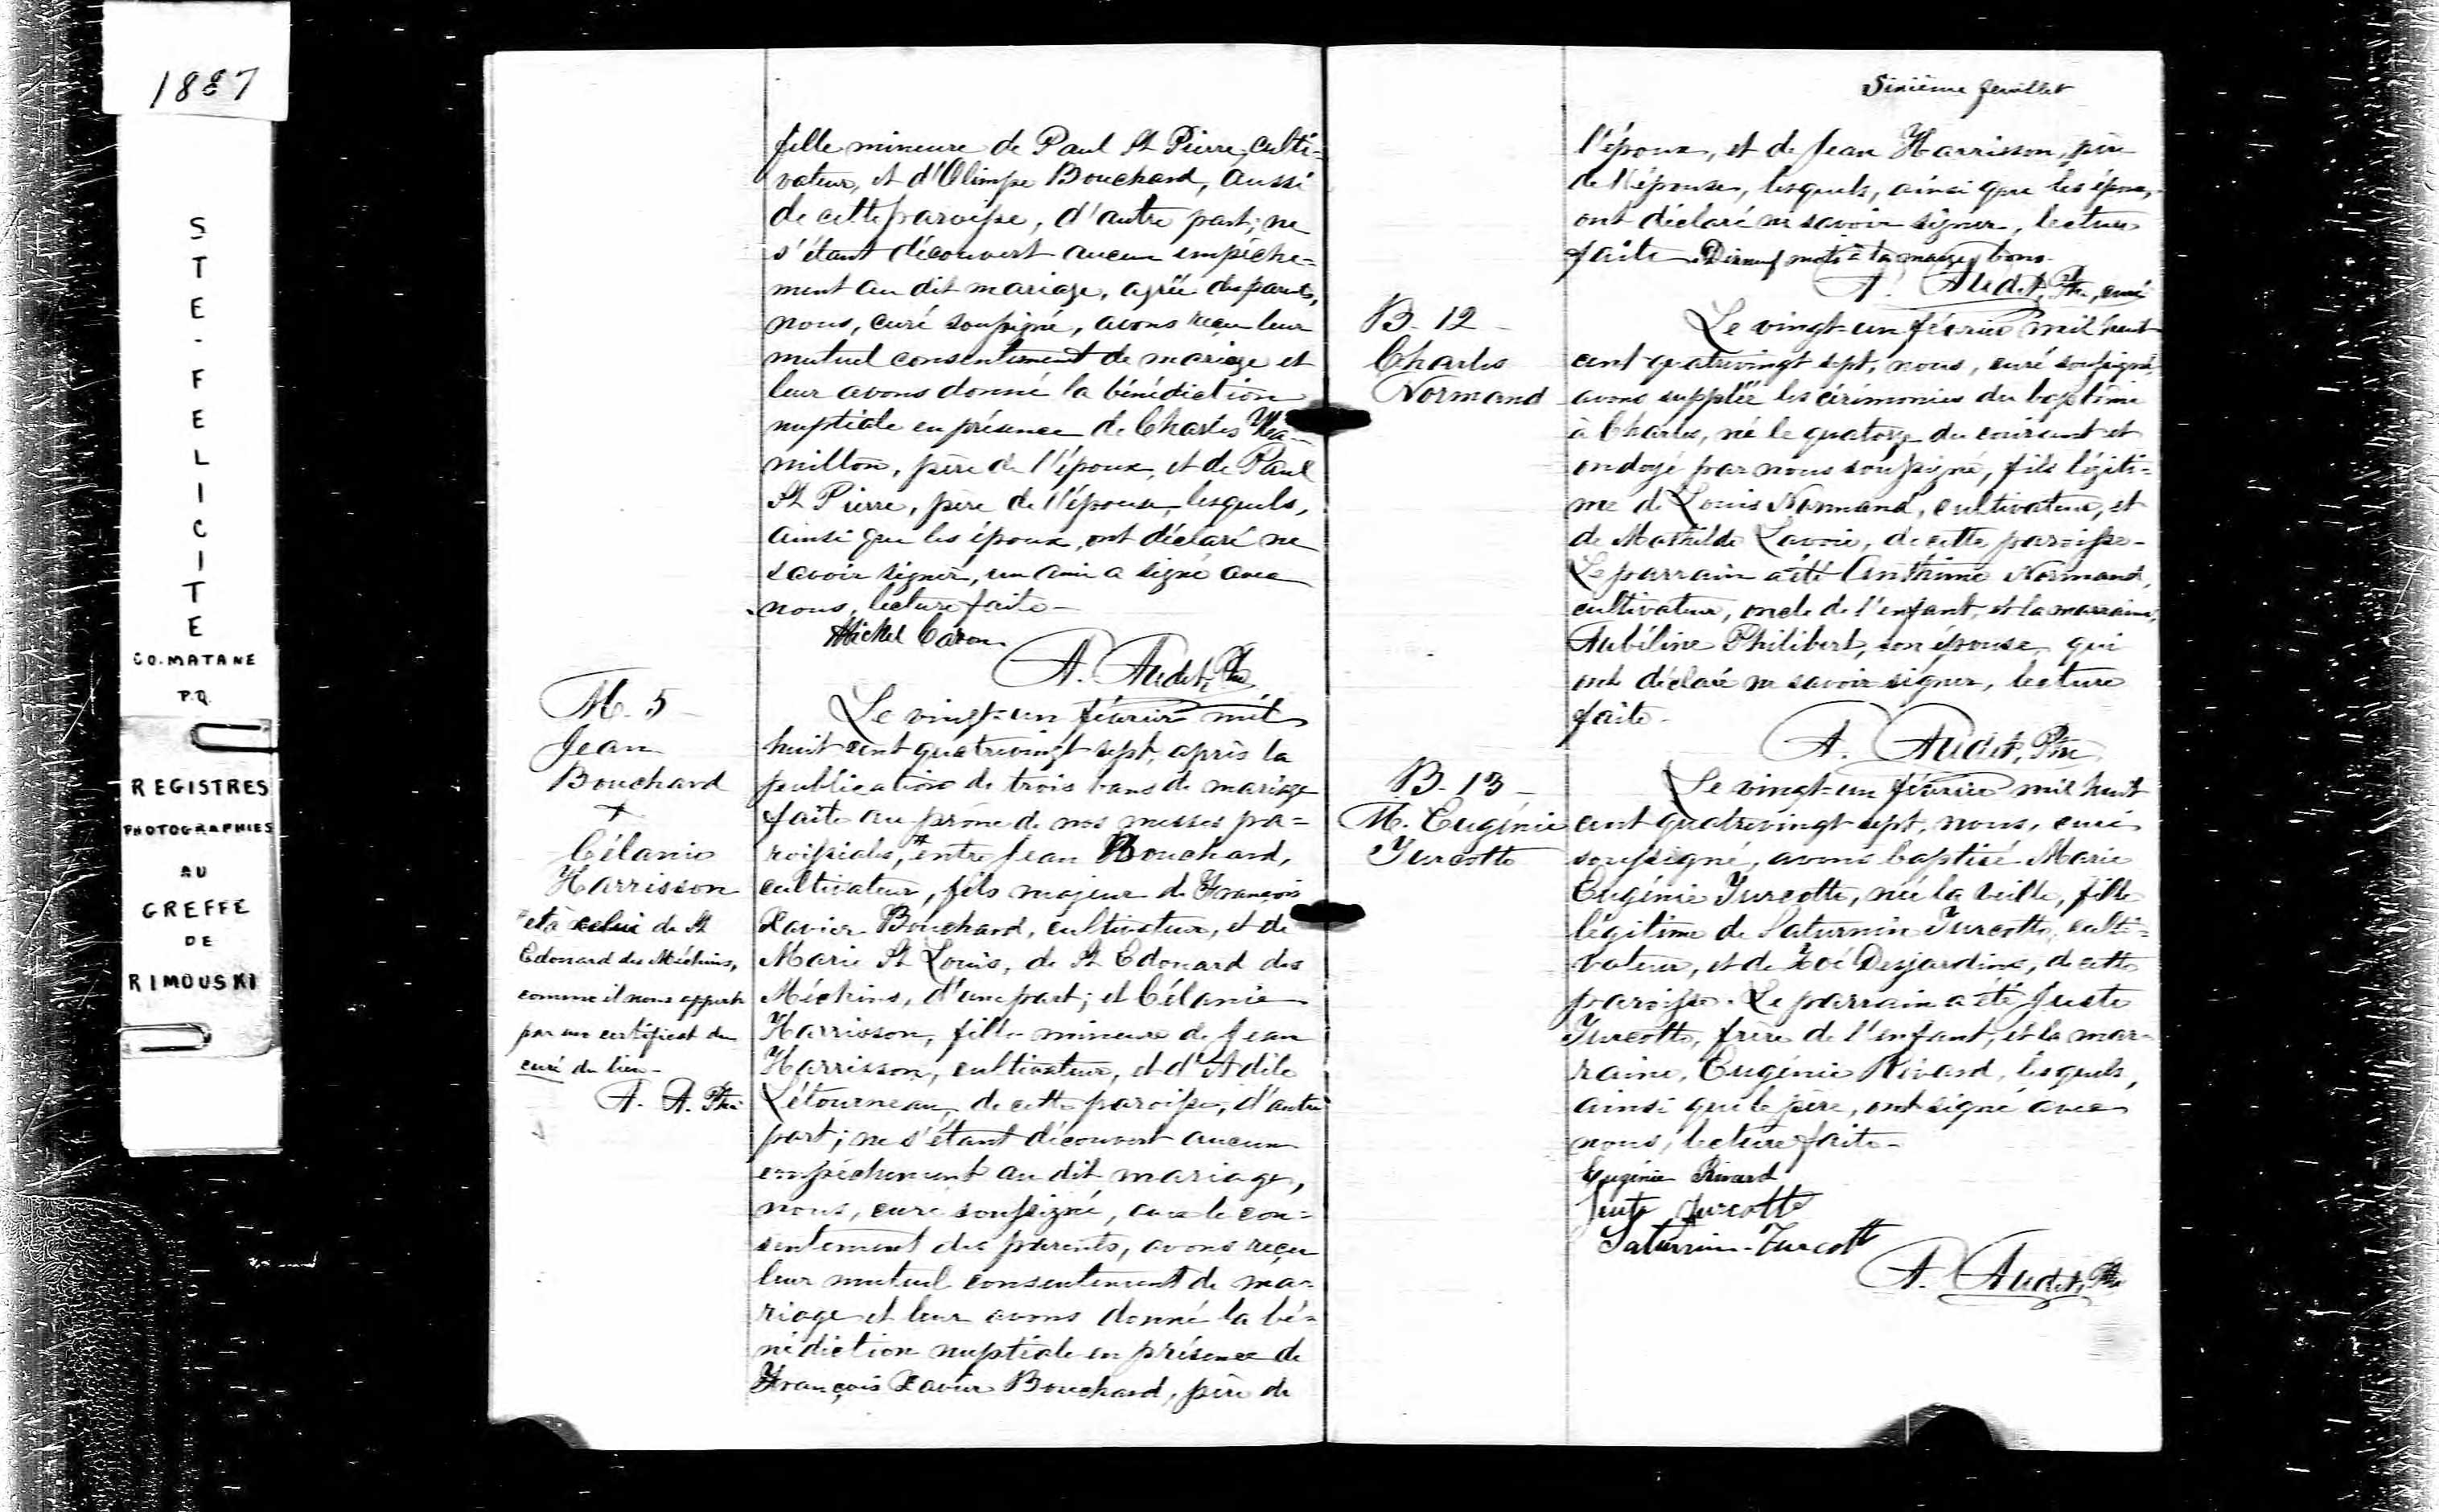 1887
STE-FELICITE
CO. MATANE
P.Q.
REGISTRES
PHOTOGRAPHIES
AU
GREFFE
DE
RIMOUSKI
fille mineure de Paul St Pierre, culti-
vateur, et d'Olimpe Bouchard, aussi
de cette paroisse, d'autre part; ne
s'étant découvert aucun empêche-
ment au dit mariage, agréé des parents,
nous, curé soussigné, avons reçu leur
mutuel consentement de mariage et
leur avons donné la bénédiction
nuptiale en présence de Charles Ha-
milton, père de l'époux, et de Paul
St Pierre, père de l'épouse, lesquels,
ainsi que les époux, ont déclaré ne
savoir signer, un ami a signé avec
nous, lecture faite-
Michel Caron
A. Audet, Ptre
M. 5-
Jean
Bouchard
+
Célanie
Harrisson
Le vingt-un février mil
huit cent quatrevingt sept, après la
publication de trois bans de mariage
faite au prône de nos messes pa-
roissiales, # entre Jean Bouchard,
cultivateur, fils majeur de François
Xavier Bouchard, cultivateur, et de
Marie St Louis, de St Edouard des
Méchins, d'une part; et Célanie
Harrisson, fille mineure de Jean
Harrisson, cultivateur, et d'Adèle
Létourneau, de cette paroisse, d'autre
part; ne s'étant découvert aucun
empêchement au dit mariage,
nous, curé soussigné, avec le con-
sentement des parents, avons reçu
leur mutuel consentement de ma-
riage et leur avons donné la bé-
nédiction nuptiale en présence de
François Xavier Bouchard, père de
# et à celui de St
Edouard des Méchins,
comme il nous appert
par un certificat du
curé du lieu-
A. A. Ptre
Sixième feuillet
l'époux, et de Jean Harrisson, père
de l'épouse, lesquels, ainsi que les époux,
ont déclaré ne savoir signer, lecture
faite. Dixneuf mots à la marge bons.
A. Audet, Ptre, curé
B- 12-
Charles
Normand
Le vingt-un février mil huit
cent quatrevingt sept, nous, curé soussigné,
avons suppléé les cérémonies du baptême
à Charles, né le quatorze du courant et
ondoyé par nous soussigné, fils légiti-
me de Louis Normand, cultivateur, et
de Mathilde Lavoie, de cette paroisse-
Le parrain a été Anthime Normand,
cultivateur, oncle de l'enfant, et la marraine,
Aubéline Philibert, son épouse, qui
ont déclaré ne savoir signer, lecture
faite-
A. Audet, Ptre
B- 13-
M. Eugénie
Turcotte
Le vingt-un février mil huit
cent quatrevingt sept, nous, curé
soussigné, avons baptisé Marie
Eugénie Turcotte, née la veille, fille
légitime de Saturnin Turcotte, culti-
vateur, et de Zoé Desjardins, de cette
paroisse. Le parrain a été Juste
Turcotte, frère de l'enfant, et la mar-
raine, Eugénie Rivard, lesquels,
ainsi que le père, ont signé avec
nous, lecture faite-
Eugénie Rivard
Juste Turcotte
Saturnin Turcott
A. Audet, Ptre